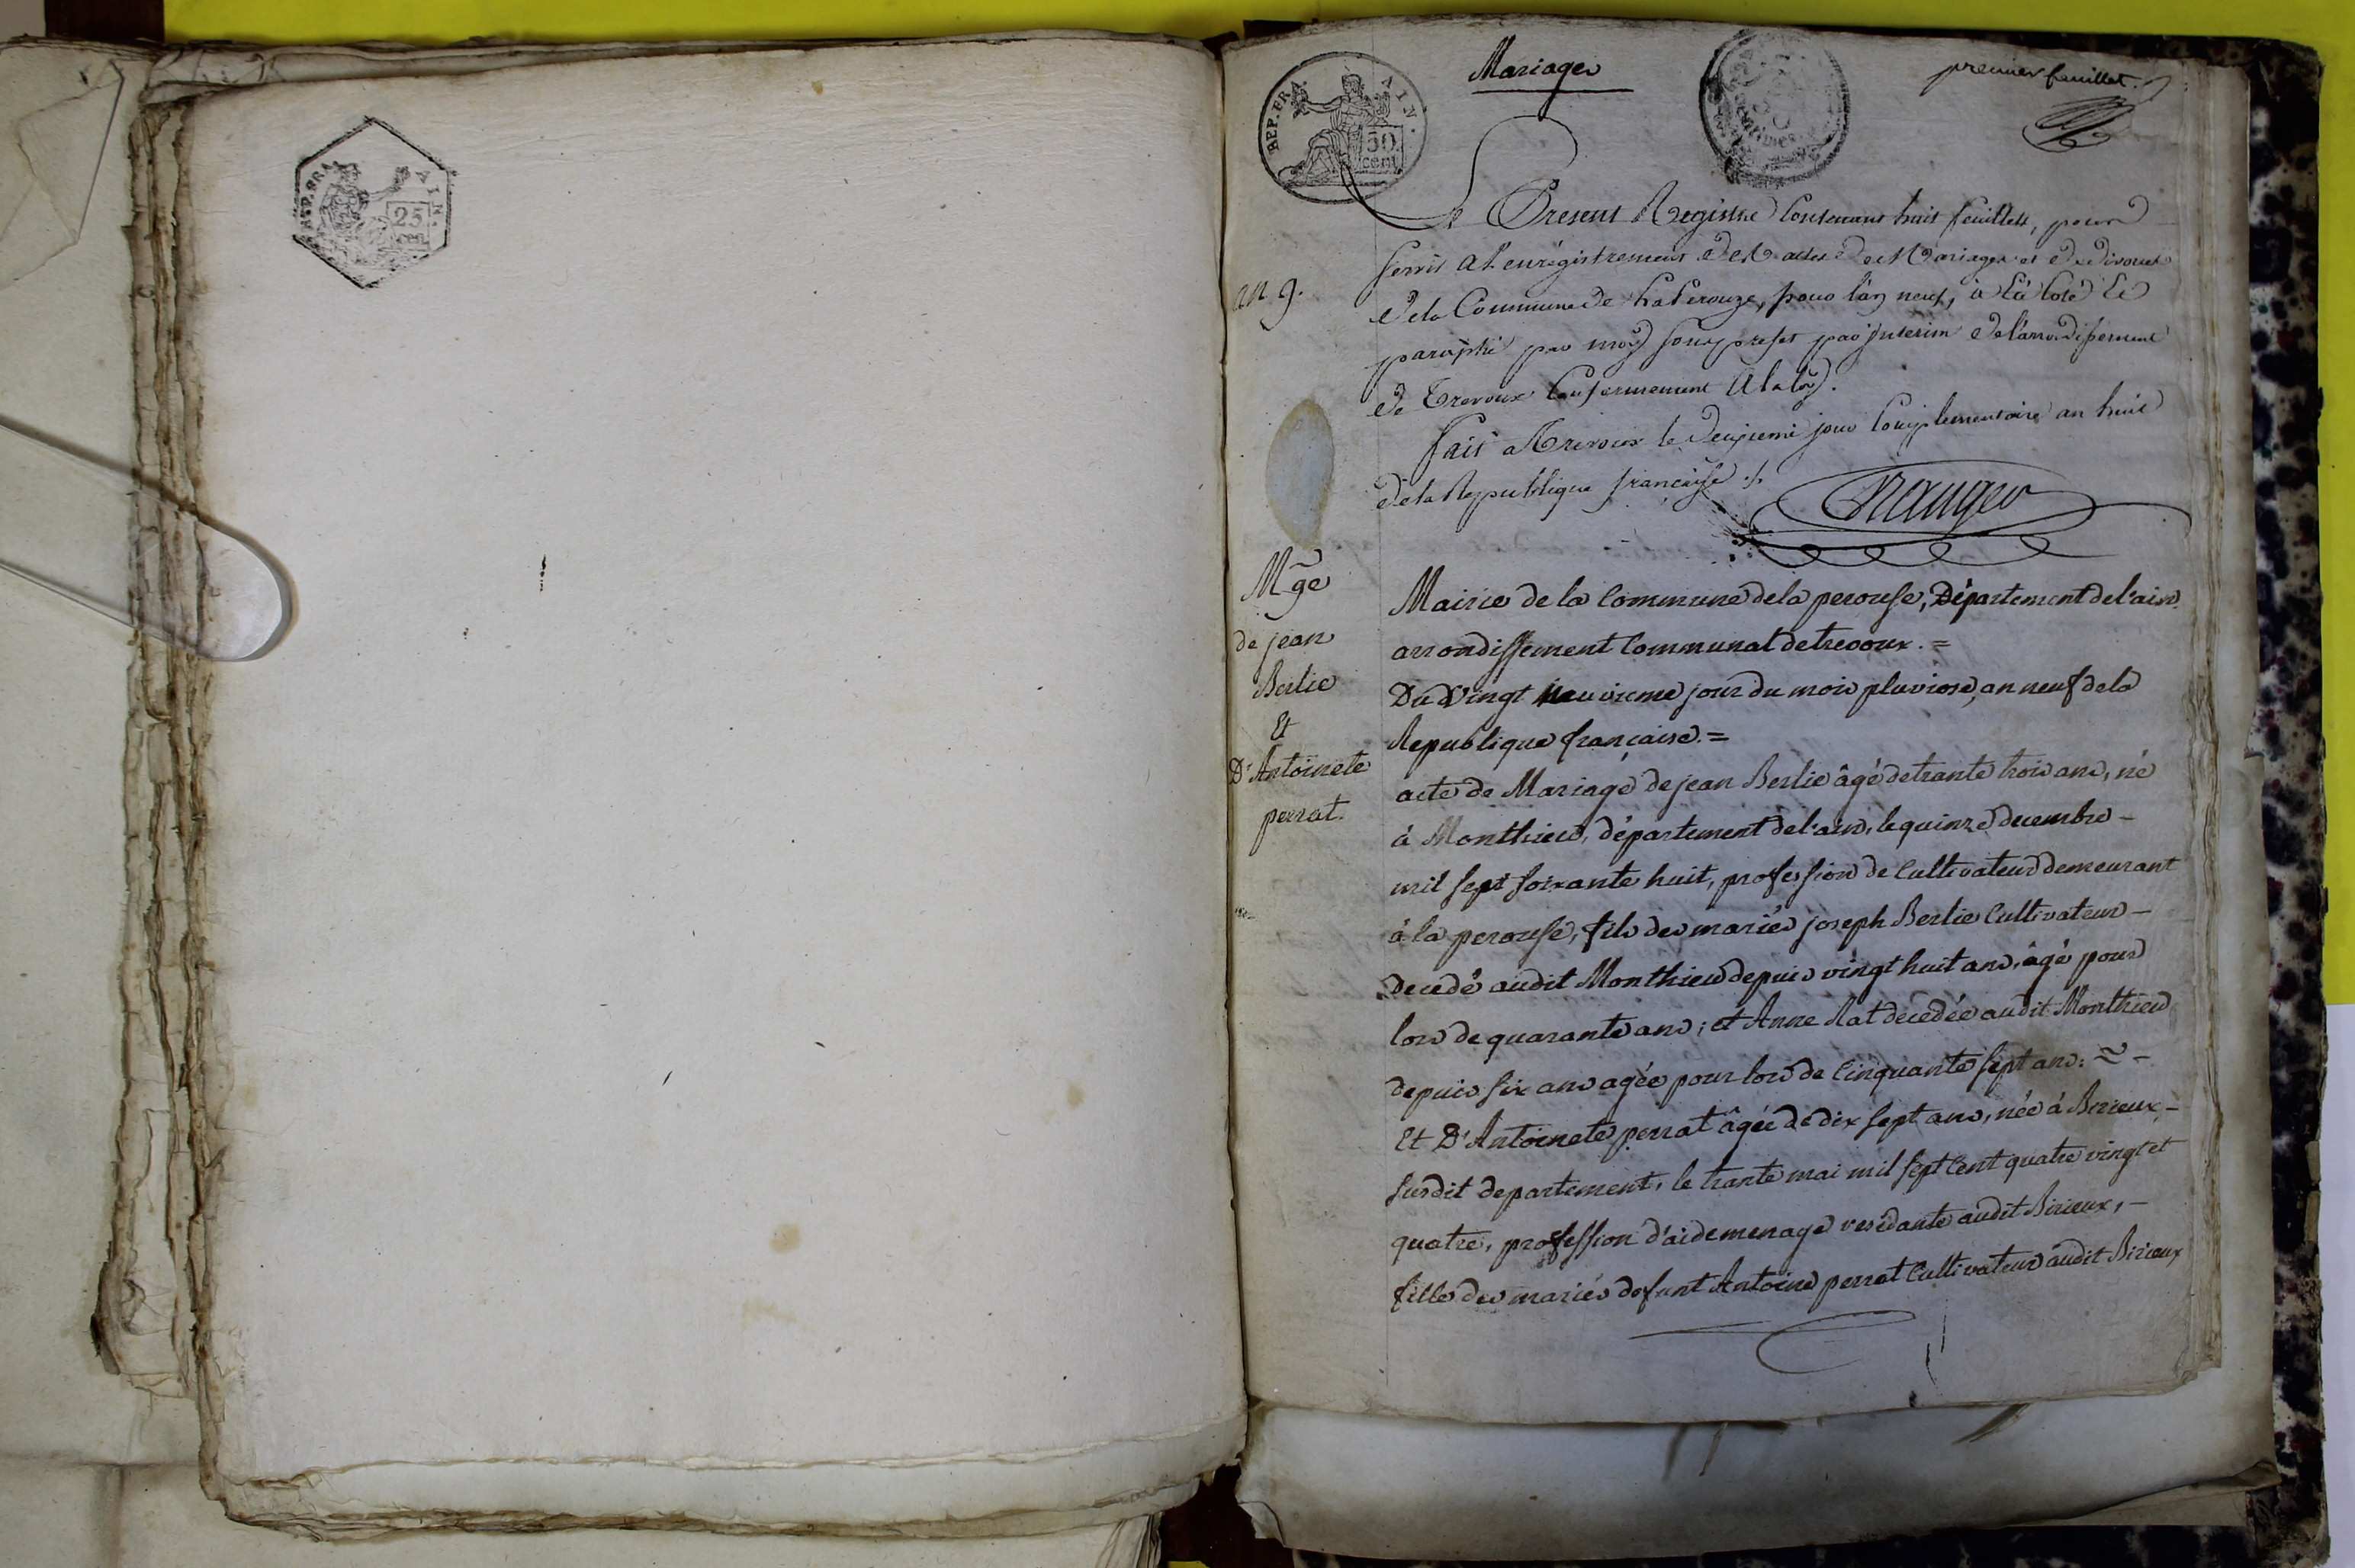 REP. FRA.
AIN.
25
cen.
Mariages
premier feuillet.
REP. FRA.
AIN.
50
cent
Le Present Registre Contenant huit feuillets, pour
servir a l'enrégistrement des actes de Mariages et de divorces
an 9.
de la Commune de La Perouze, pour l'an neuf, à été Coté Et
paraphé par moy souspréfet par interim de l'arrondissement
de Trevoux Conformement a la loy.
fait a Trevoux le deuxieme jour Complementaire an huit
de la Republique française ./.
Mge
de jean
Berlie
Et
De Antoinete
perrat.
Mairie de la Commune de la perouse, Département de l'ain
arrondissement Communal de trevoux. =
Du Vingt neuvieme jour du mois pluviose, an neuf de la
Republique française. =
acte de Mariage de jean Berlie âgé de trante trois ans, né
à Monthieu, département de l'ain, le quinze decembre -
mil sept soixante huit, profession de Cultivateur demeurant
à la perouse, fils des mariés joseph Berlie Cultivateur -
decedé audit Monthieu depuis vingt huit ans, âgé pour
lors de quarante ans; et Anne Rat decedée audit Monthieu
depuis six ans agée pour lors de Cinquante sept ans: ~ -
Et De Antoinete perrat âgée de dix sept ans, née à Birieux -
susdit departement, le trante mai mil sept Cent quatre vingt et
quatre, profession d'aide menage residante audit Birieux, -
fille des mariés defunt Antoine perrat Cultivateur audit Birieux